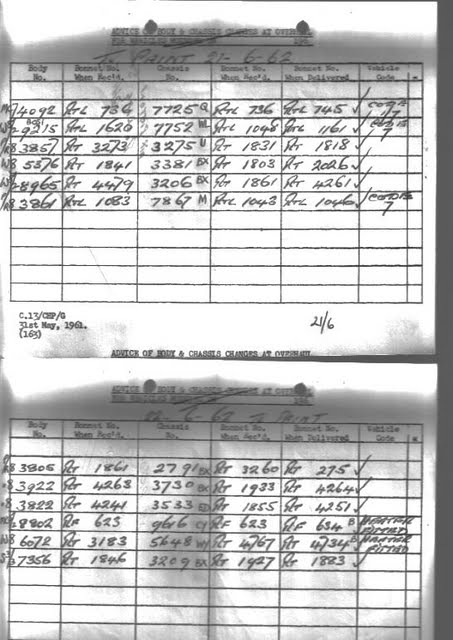 ADVICE OF BODY & CHASSIS CHANGES AT OVERHAUL
FOR VEHICLES
To PAINT 21-6-62
Body No. Bonnet No. When Rec'd. Chassis No. Bonnet No. When Rec'd. Bonnet No. When Delivered Vehicle Code
4092 RTL 736 7725 Q RTL 736 RTL 745 ✓ 7
9215 RTL 1620 7752 WL RTL 1048 RTL 1161 ✓ 7
8 3857 RT 3273 3275 U RT 1831 RT 1818 ✓
W8 5376 RT 1841 3381 BX RT 1803 RT 2026 ✓
8965 RT 4479 3206 BX RT 1861 RT 4261 ✓
8 3861 RTL 1083 7867 M RTL 1043 RTL 1046 ✓ 7
C.13/CHP/G
31st May, 1961.
(163)
21/6
ADVICE OF BODY & CHASSIS CHANGES AT OVERHAUL
ADVICE OF BODY & CHASSIS CHANGES AT OVERHAUL
FOR VEHICLES
22-6-62 To PAINT
Body No. Bonnet No. When Rec'd. Chassis No. Bonnet No. When Rec'd. Bonnet No. When Delivered Vehicle Code
8 3805 RT 1861 2791 BX RT 3260 RT 275 ✓
8 3922 RT 4263 3730 BX RT 1933 RT 4264 ✓
8 3822 RT 4241 3533 ED RT 1855 RT 4251 ✓
8802 RF 623 9616 CY RF 623 RF 634 B HEATER FITTED
W8 6072 RT 3183 5648 RT 4767 RT 4734 B HEATER FITTED
7356 RT 1846 3209 BX RT 1927 RT 1883 ✓